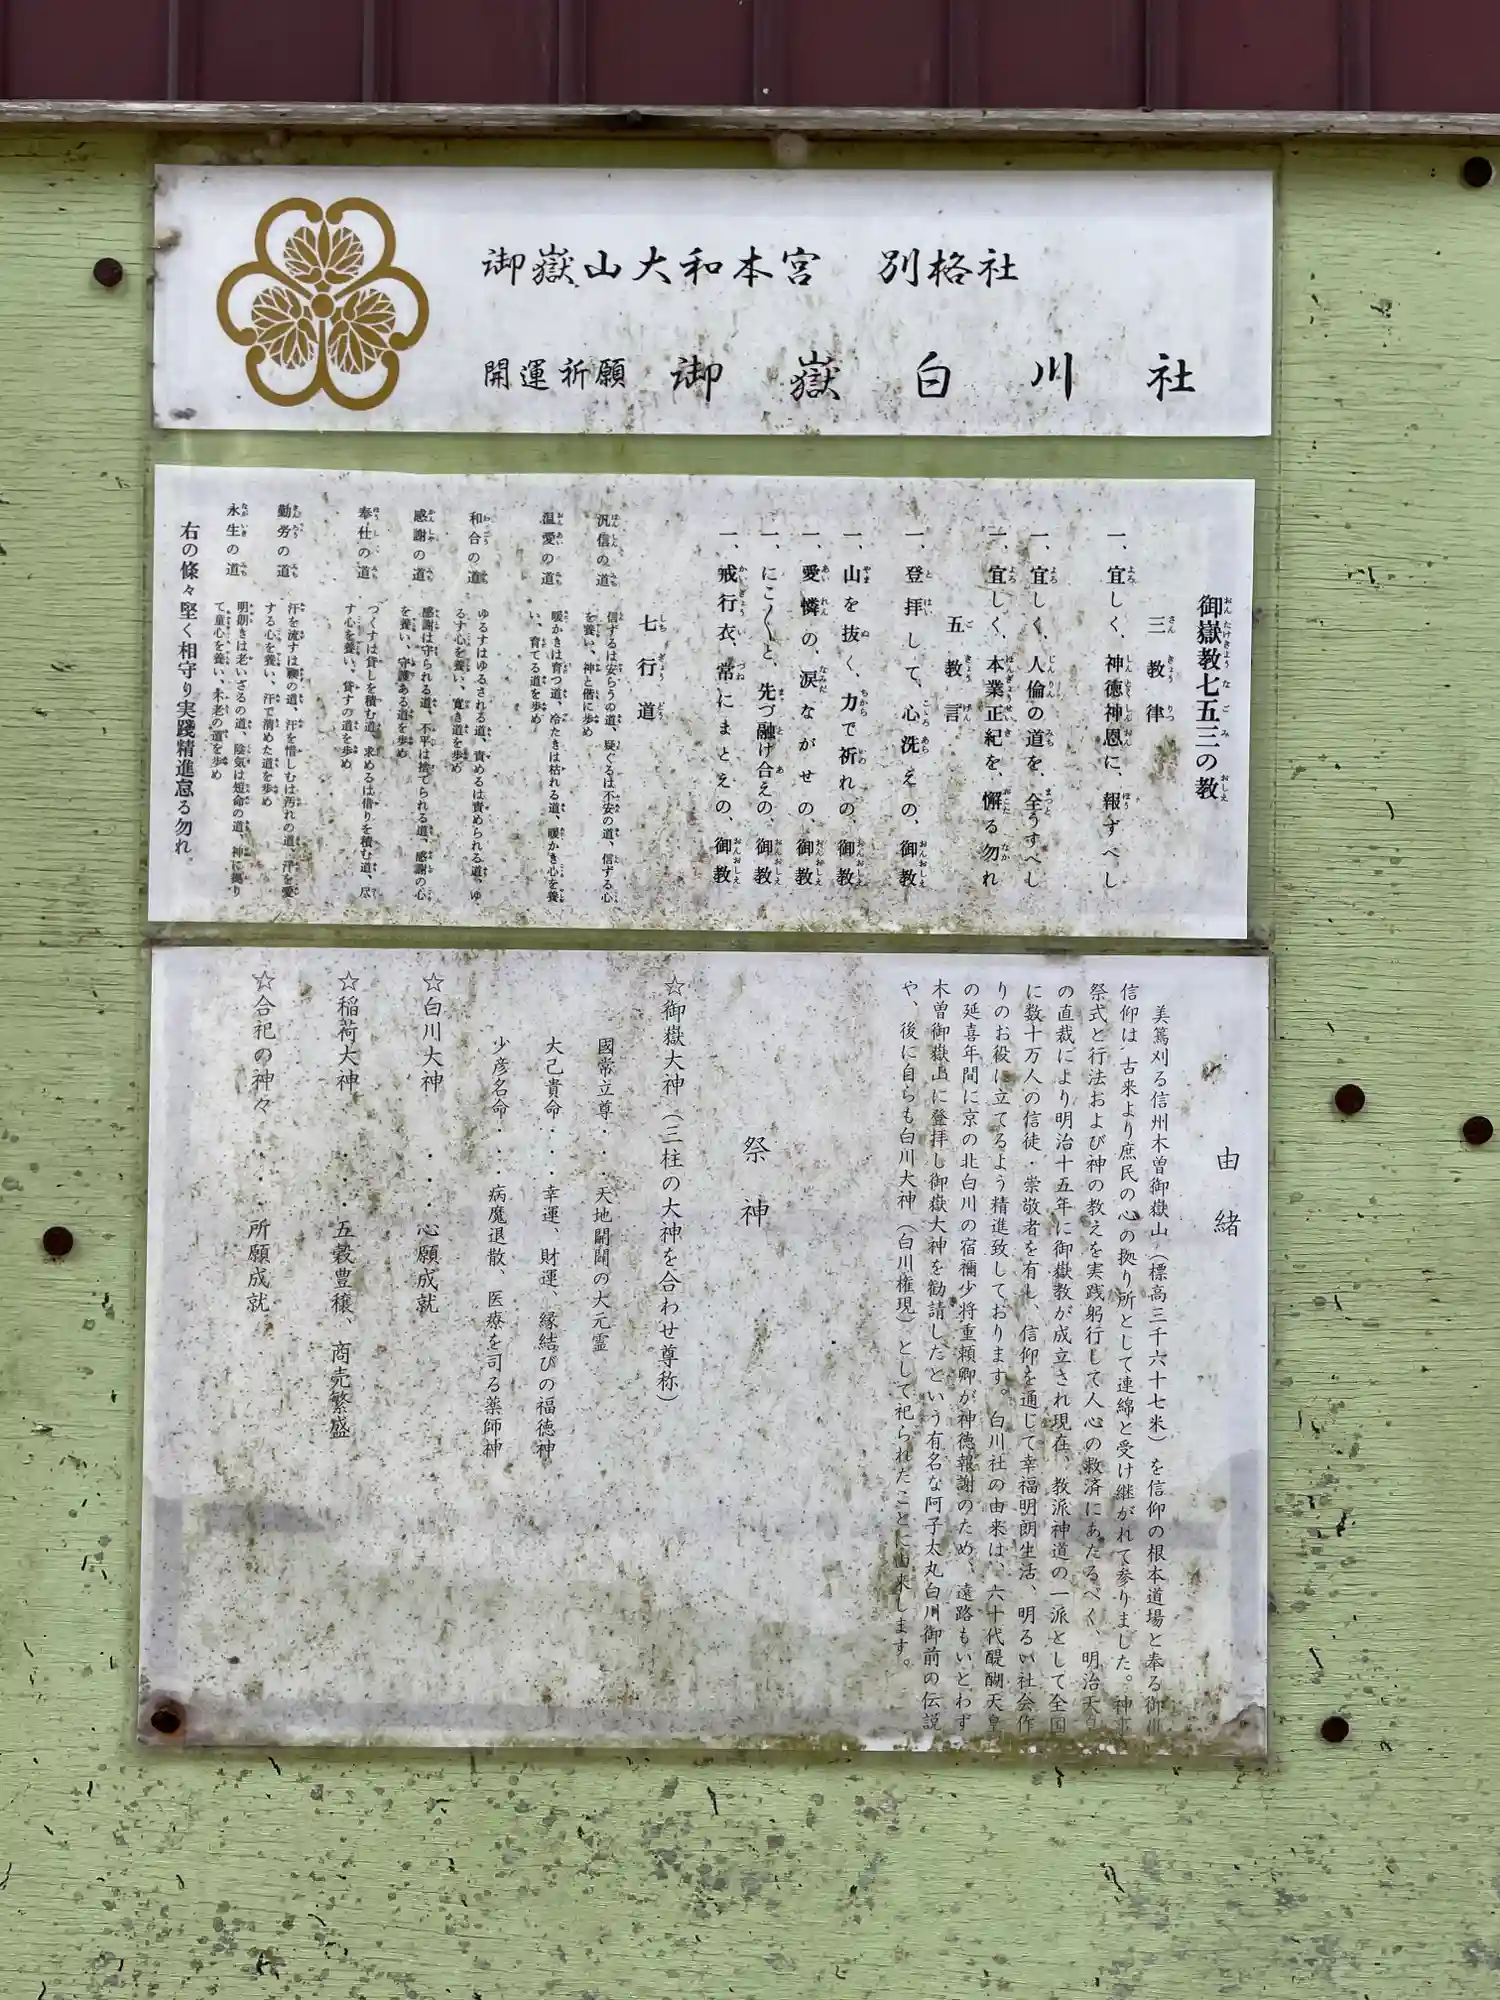 御嶽山大和本宮　別格社
開運祈願　御嶽白川社
御嶽教七五三の教
三教律
一、宜しく、神徳神恩に、報ずべし
一、宜しく、人倫の道を、全うすべし
一、宜しく、本業正紀を、懈る勿れ
五教言
一、登拝して、心洗えの、御教
一、山を抜く、力で祈れの、御教
一、愛憐の、涙ながせの、御教
一、にこ〱と、先づ融け合えの、御教
一、戒行衣、常にまとえの、御教
七行道
汎信の道　信ずるは安らうの道、疑ぐるは不安の道、信ずる心
を養い、神と偕に歩め
温愛の道　暖かきは育つ道、冷たきは枯れる道、暖かき心を養
い、育てる道を歩め
和合の道　ゆるすはゆるされる道、責めるは責められる道、ゆ
るす心を養い、寛き道を歩め
感謝の道　感謝は守られる道、不平は捨てられる道、感謝の心
を養い、守護ある道を歩め
奉仕の道　つくすは貸しを積む道、求めるは借りを積む道、尽
す心を養い、貸すの道を歩め
勤労の道　汗を流すは禊の道、汗を惜しむは汚れの道、汗を愛
する心を養い、汗で清めた道を歩め
永生の道　明朗きは老いざるの道、陰気は短命の道、神に縋り
て童心を養い、未老の道を歩め
右の條々堅く相守り実践精進怠る勿れ
由緒
美篶刈る信州木曽御嶽山（標高三千六十七米）を信仰の根本道場と奉る御嶽
信仰は、古来より庶民の心の拠り所として連綿と受け継がれて参りました。神事
祭式と行法および神の教えを実践躬行して人心の救済にあたるべく、明治天皇
の直裁により明治十五年に御嶽教が成立され現在、教派神道の一派として全国
に数十万人の信徒・崇敬者を有し、信仰を通じて幸福明朗生活、明るい社会作
りのお役に立てるよう精進致しております。白川社の由来は、六十代醍醐天皇
の延喜年間に京の北白川の宿禰少将重頼卿が神徳報謝のため、遠路もいとわず
木曽御嶽山に登拝し御嶽大神を勧請したという有名な阿子太丸白川御前の伝説
や、後に自らも白川大神（白川権現）として祀られたことに由来します。
祭神
☆御嶽大神（三柱の大神を合わせ尊称）
國常立尊・・・天地開闢の大元霊
大己貴命・・・幸運、財運、縁結びの福徳神
少彦名命・・・病魔退散、医療を司る薬師神
☆白川大神・・・心願成就
☆稲荷大神・・・五穀豊穣、商売繁盛
☆合祀の神々・・・所願成就